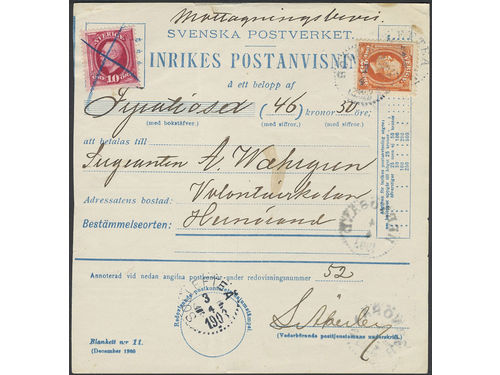 Mottagningsbevis.
SVENSKA POSTVERKET.
INRIKES POSTANVISNING
å ett belopp af
Fyratiosex (46) kronor 50 öre,
(med bokstäfver.) (med siffror.) (med siffror.)
att betalas till
Sergeanten A Wæhrgren
Adressatens bostad: Volontärskolan
Bestämmelseorten: Hernösand
Annoterad vid nedan angifna postkontor under redovisningsnummer 52
SOLLEFTEÅ
3
4
1903
Redovisande postkontorets afgångsstämpel
(Vederbörande posttjenstemans underskrift.)
Blankett n:r 11.
(December 1900)
SVERIGE
10
SVERIGE